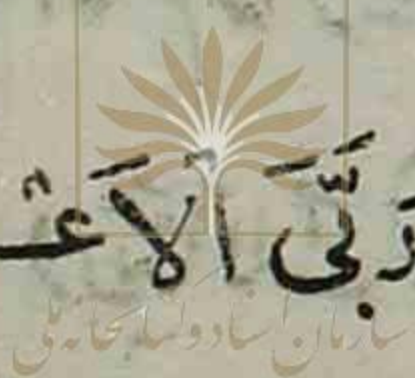 رَبِّیَ الاَعْـ
سازمان اسناد و کتابخانه ملی